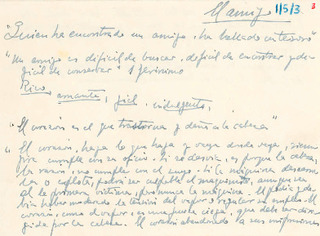 El amigo 1/5/3. 3
"Quien ha encontrado un amigo, ha hallado un tesoro"
"Un amigo es difícil de buscar, difícil de encontrar y de
fícil de conservar" S. Jerónimo
Rico, amante, fiel, indulgente,
"El corazón es el que trastorna y daña la cabeza"
" El corazón, haga lo que haga y vaya donde vaya, siem
pre cumple con su oficio. Si se desvía, es porque la cabeza,
la razón, no cumple con el suyo. Si la máquina descarri
la o explota, podrá ser culpable el maquinista, aunque sea
él la primera víctima, pero nunca la máquina. Él podía y de
bía haber moderado la tensión del vapor o regular su marcha. El
corazón, como el vapor, es una fuerza ciega, que debe ser diri
gida por la cabeza. El corazón abandonado a sus inspiraciones